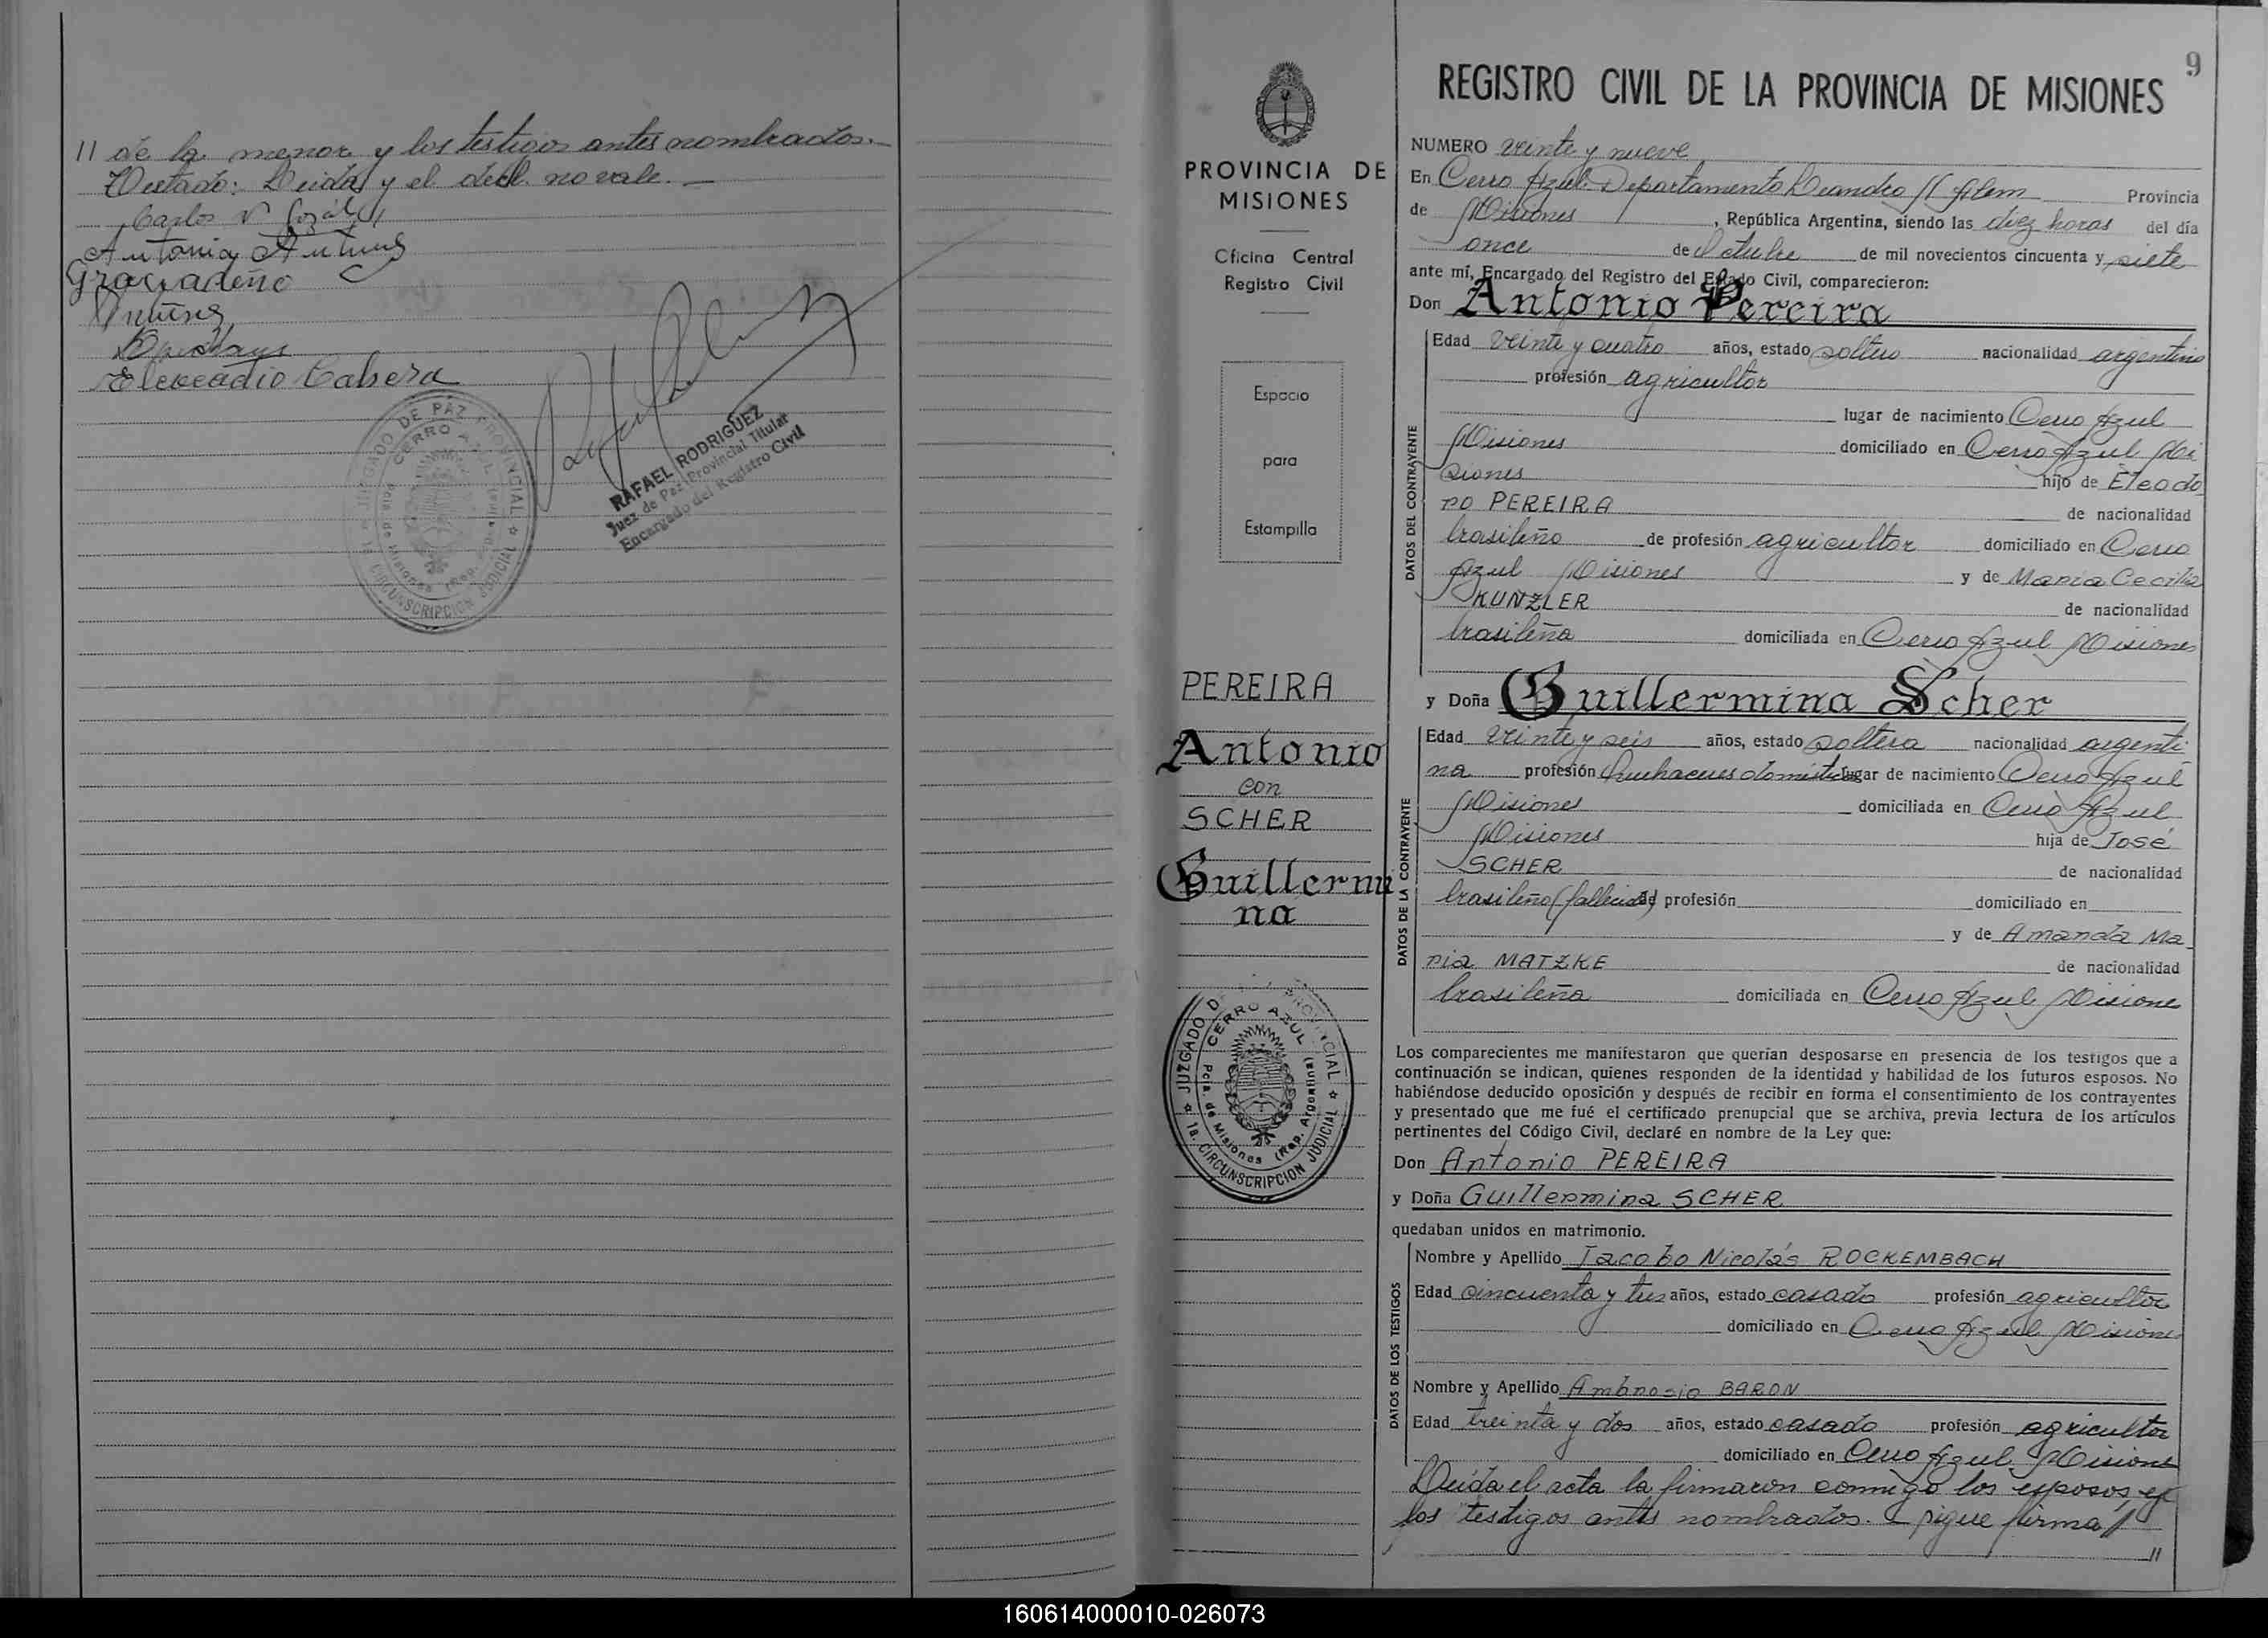 // de la menor y los testigos antes nombrados.-
Testado: Leida y el decl. no vale. —
Carlos N
Antonia Antunes
Graciadeño
Antunes
Eleocadio Cabsera
JUZGADO DE PAZ PROVINCIAL
CERRO AZUL
Pcia. de Misiones (Rep. Argentina)
1a. CIRCUNSCRIPCION JUDICIAL
RAFAEL RODRIGUEZ
Juez de Paz Provincial Titular
Encargado del Registro Civil
PROVINCIA DE
MISIONES
Oficina Central
Registro Civil
Espacio
para
Estampilla
PEREIRA
Antonio
con
SCHER
Guillermi
na
JUZGADO DE PAZ PROVINCIAL
CERRO AZUL
Pcia. de Misiones (Rep. Argentina)
1a. CIRCUNSCRIPCION JUDICIAL
9
REGISTRO CIVIL DE LA PROVINCIA DE MISIONES
NUMERO veinte y nueve
En Cerro Azul Departamento Leandro N Alem Provincia
de Misiones, República Argentina, siendo las diez horas del día
once de Octubre de mil novecientos cincuenta y siete
ante mí, Encargado del Registro del Estado Civil, comparecieron:
Don Antonio Pereira
DATOS DEL CONTRAYENTE
Edad veinte y cuatro años, estado soltero nacionalidad argentino
profesión agricultor
lugar de nacimiento Cerro Azul
Misiones domiciliado en Cerro Azul Mi
siones hijo de Eleodo
ro PEREIRA de nacionalidad
brasileño de profesión agricultor domiciliado en Cerro
Azul Misiones y de Maria Cecilia
KUNZLER de nacionalidad
brasileña domiciliada en Cerro Azul Misiones
y Doña Guillermina Scher
DATOS DE LA CONTRAYENTE
Edad veinte y seis años, estado soltera nacionalidad argenti-
na profesión quehaceres domésticos lugar de nacimiento Cerro Azul
Misiones domiciliada en Cerro Azul
Misiones hija de José
SCHER de nacionalidad
brasileño (fallecido) de profesión domiciliado en
y de Amanda Ma-
ria MATZKE de nacionalidad
brasileña domiciliada en Cerro Azul Misione
Los comparecientes me manifestaron que querían desposarse en presencia de los testigos que a
continuación se indican, quienes responden de la identidad y habilidad de los futuros esposos. No
habiéndose deducido oposición y después de recibir en forma el consentimiento de los contrayentes
y presentado que me fué el certificado prenupcial que se archiva, previa lectura de los artículos
pertinentes del Código Civil, declaré en nombre de la Ley que:
Don Antonio PEREIRA
y Doña Guillermina SCHER
quedaban unidos en matrimonio.
DATOS DE LOS TESTIGOS
Nombre y Apellido Jacobo Nicolás ROCKEMBACH
Edad cincuenta y tres años, estado casado profesión agricultor
domiciliado en Cerro Azul Misiones
Nombre y Apellido Ambrosio BARON
Edad treinta y dos años, estado casado profesión agricultor
domiciliado en Cerro Azul Misiones
Leida el acta la firmaron conmigo los esposos, y
los testigos antes nombrados. Sigue firma //
//
160614000010-026073